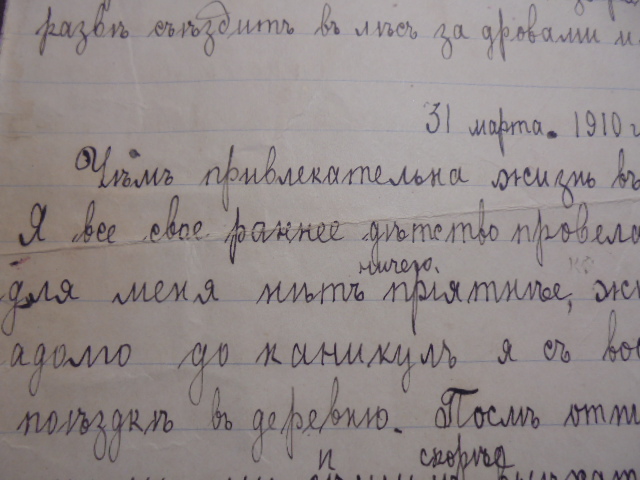 развѣ съѣздитъ въ лѣсъ за дровами и
31 марта. 1910 г
Чѣмъ привлекательна жизнь въ
Я все свое раннее дѣтство провела
ничего
для меня нѣтъ прiятнѣе, жи
адолго до каникулъ я съ вос
поѣздкѣ въ деревню. Послѣ отп
и скорѣе